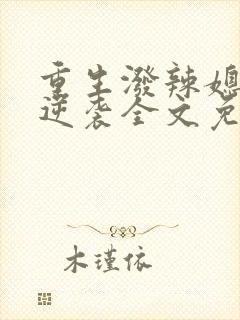 重生潑辣媳
逆袭全文免
木瑾依